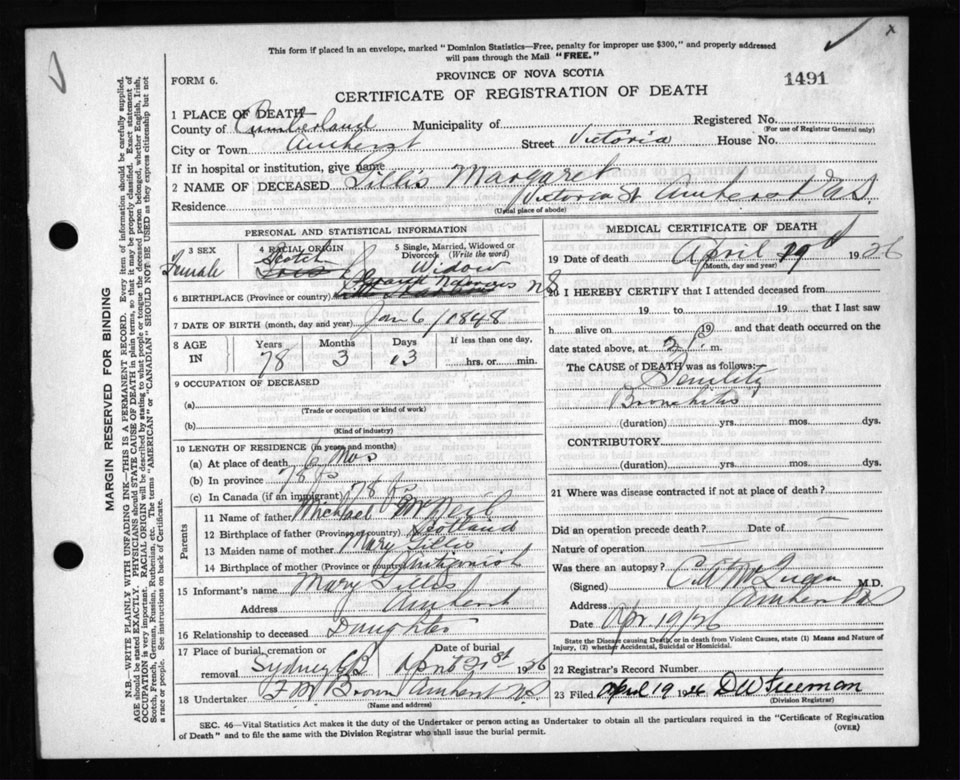 This form if placed in an envelope, marked "Dominion Statistics—Free, penalty for improper use $300," and properly addressed
will pass through the Mail "FREE."
FORM 6.
PROVINCE OF NOVA SCOTIA
1491
CERTIFICATE OF REGISTRATION OF DEATH
1 PLACE OF DEATH
County of Cumberland Municipality of Registered No.
(For use of Registrar General only)
City or Town Amherst Street Victoria House No.
If in hospital or institution, give name
2 NAME OF DECEASED Gillis Margaret
Residence Victoria St Amherst N.S.
(Usual place of abode)
PERSONAL AND STATISTICAL INFORMATION
3 SEX
Female
4 RACIAL ORIGIN
Scotch
5 Single, Married, Widowed or
Divorced (Write the word)
Widow
6 BIRTHPLACE (Province or country) Grand Narrows NS
7 DATE OF BIRTH (month, day and year) Jan 6/1848
8 AGE
IN
Years
78
Months
3
Days
13
If less than one day,
hrs. or min.
9 OCCUPATION OF DECEASED
(a)
(Trade or occupation or kind of work)
(b)
(Kind of industry)
10 LENGTH OF RESIDENCE (in years and months)
(a) At place of death 6 Mos
(b) In province 78
(c) In Canada (if an immigrant) 78
Parents
11 Name of father Michael McNeil
12 Birthplace of father (Province or country) Scotland
13 Maiden name of mother Mary Gillis
14 Birthplace of mother (Province or country) Antigonish
15 Informant's name Mary Gillis
Address Amherst
16 Relationship to deceased Daughter
17 Place of burial, cremation or
removal Sydney CB
Date of burial
April 21st 1926
18 Undertaker F. Brown Amherst N.S
(Name and address)
MEDICAL CERTIFICATE OF DEATH
19 Date of death April 19th 1926
(Month, day and year)
20 I HEREBY CERTIFY that I attended deceased from
19 to 19 that I last saw
h alive on 19 and that death occurred on the
date stated above, at 2 P. m.
The CAUSE of DEATH was as follows:
Senility
Bronchitis
(duration) yrs. mos. dys.
CONTRIBUTORY
(duration) yrs. mos. dys.
21 Where was disease contracted if not at place of death?
Did an operation precede death? Date of
Nature of operation
Was there an autopsy?
(Signed) C.A. McQueen M.D.
Address Amherst NS
Date Apr. 19/26
State the Disease causing Death, or in death from Violent Causes, state (1) Means and Nature of
Injury, (2) whether Accidental, Suicidal or Homicidal.
22 Registrar's Record Number
23 Filed April 19 1926 D W Freeman
(Division Registrar)
SEC. 46—Vital Statistics Act makes it the duty of the Undertaker or person acting as Undertaker to obtain all the particulars required in the "Certificate of Registration
of Death" and to file the same with the Division Registrar who shall issue the burial permit.
(OVER)
MARGIN RESERVED FOR BINDING
N.B.—WRITE PLAINLY WITH UNFADING INK—THIS IS A PERMANENT RECORD. Every item of information should be carefully supplied.
AGE should be stated EXACTLY. PHYSICIANS should STATE CAUSE OF DEATH in plain terms, so that it may be properly classified. Exact statement of
OCCUPATION is very important. RACIAL ORIGIN will be described by stating to what people or tongue the deceased person belonged, whether English, Irish,
Scotch, French, German, Russian, Ruthenian, etc. The terms "AMERICAN" or "CANADIAN" SHOULD NOT BE USED as they express citizenship but not
a race or people. See instructions on back of Certificate.